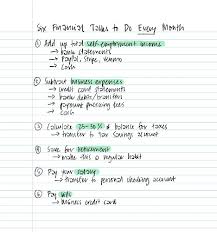 Six Financial Tasks to Do Every Month
① Add up total self-employment income
→ bank statements
→ PayPal, Stripe, Venmo
→ cash
② Subtract business expenses
→ credit card statements
→ bank debits/transfers
→ payment processing fees
→ cash
③ Calculate 25-30% of balance for taxes
→ transfer to tax savings account
④ Save for retirement
→ make this a regular habit
⑤ Pay your salary
→ transfer to personal checking account
⑥ Pay bills
→ business credit card